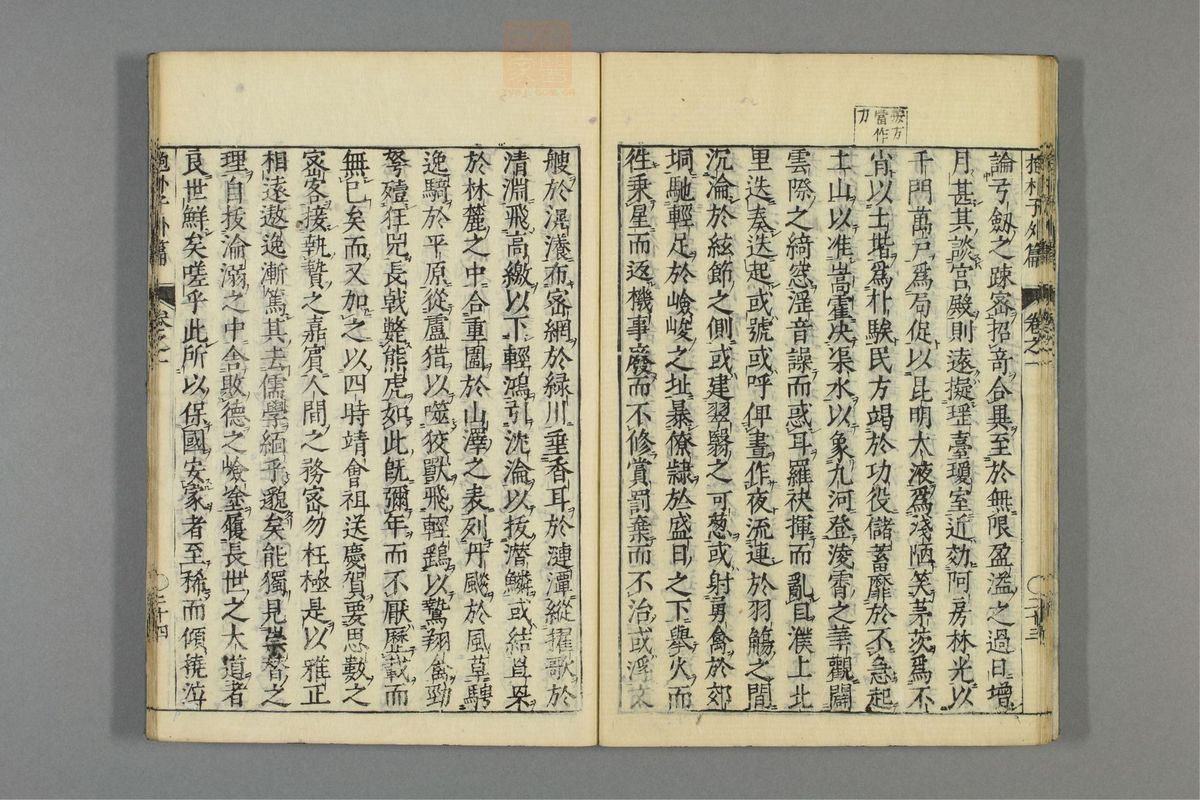 抱朴子外篇 卷之一 〇二十三
按方
當作
力
論弓劔之踈宻招竒合異至於無限盈溢之過日增
月甚其談宫殿則遠擬瑶臺瓊室近効阿房林光以
千門萬戸爲局促以昆明太液爲淺陋笑茅茨爲不
肖以土堦爲朴騃民方竭於功役儲蓄靡於不急起
土山以准嵩霍决渠水以象九河登淩霄之華觀闢
雲際之綺窓淫音譟而惑耳羅袂揮而亂目濮上北
里迭奏迭起或號或呼俾晝作夜流連於羽觴之間
沉淪於絃節之側或建翠翳之可葱或射勇禽於郊
坰馳輕足於嶮峻之址暴僚隷於盛日之下擧火而
徃乗星而返機事廢而不修賞罰棄而不治或浮文
艘於滉瀁布宻網於緑川垂香耳於漣潭縱擢歌於
清淵飛高繳以下輕鴻引沈淪以抜潜鱗或結罝罘
於林麓之中合重圍於山澤之表列丹飈於風草騁
逸騎於平原從盧猎以噬狡獸飛輕鷂以鷙翔禽勁
弩殪狂兕長戟斃熊虎如此旣彌年而不厭歴載而
無已矣而又加之以四時靖會祖送慶賀要思數之
宻客接執贄之嘉賓人間之務宻勿枉極是以雅正
相遠遨逸漸篤其去儒學緬乎邈矣能獨見崇替之
理自抜淪溺之中舎敗德之嶮塗履長世之大道者
良世鮮矣嗟乎此所以保國安家者至稀而傾撓泣
抱朴子外篇 卷之一 〇二十四